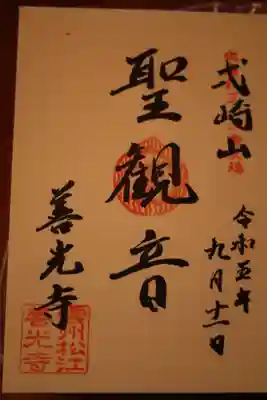 崎山
令和五年
九月十一日
聖観音
善光寺
雲州松江
善光寺